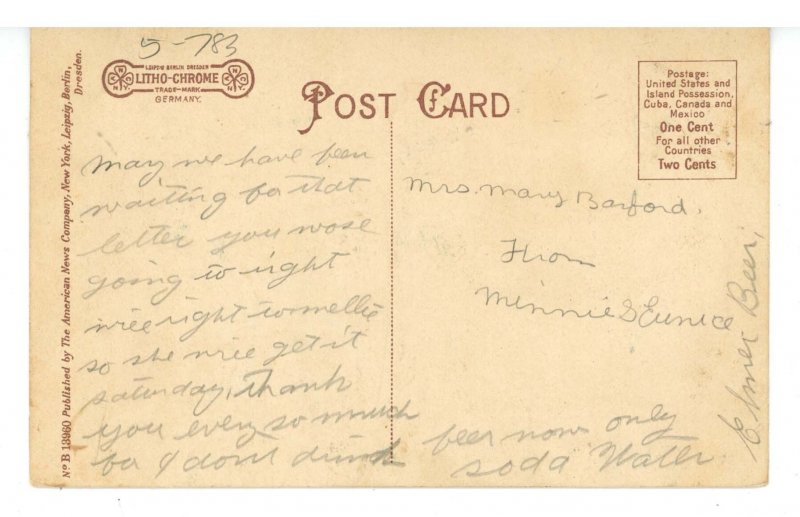 5-783
LEIPZIG BERLIN DRESDEN
LITHO-CHROME
TRADE-MARK
GERMANY.
POST CARD
Postage:
United States and
Island Possession,
Cuba, Canada and
Mexico
One Cent
For all other
Countries
Two Cents
Nº B 13960 Published by The American News Company, New York, Leipzig, Berlin,
Dresden.
Mary we have been
waiting for that
letter you wose
going to right
wree right to mellie
so she wree get it
saturday, thank
you every so much
for I dont drink
beer now only
soda Water
Mrs. Mary Barford.
From
Minnie & Eunice
Elmer Beer,